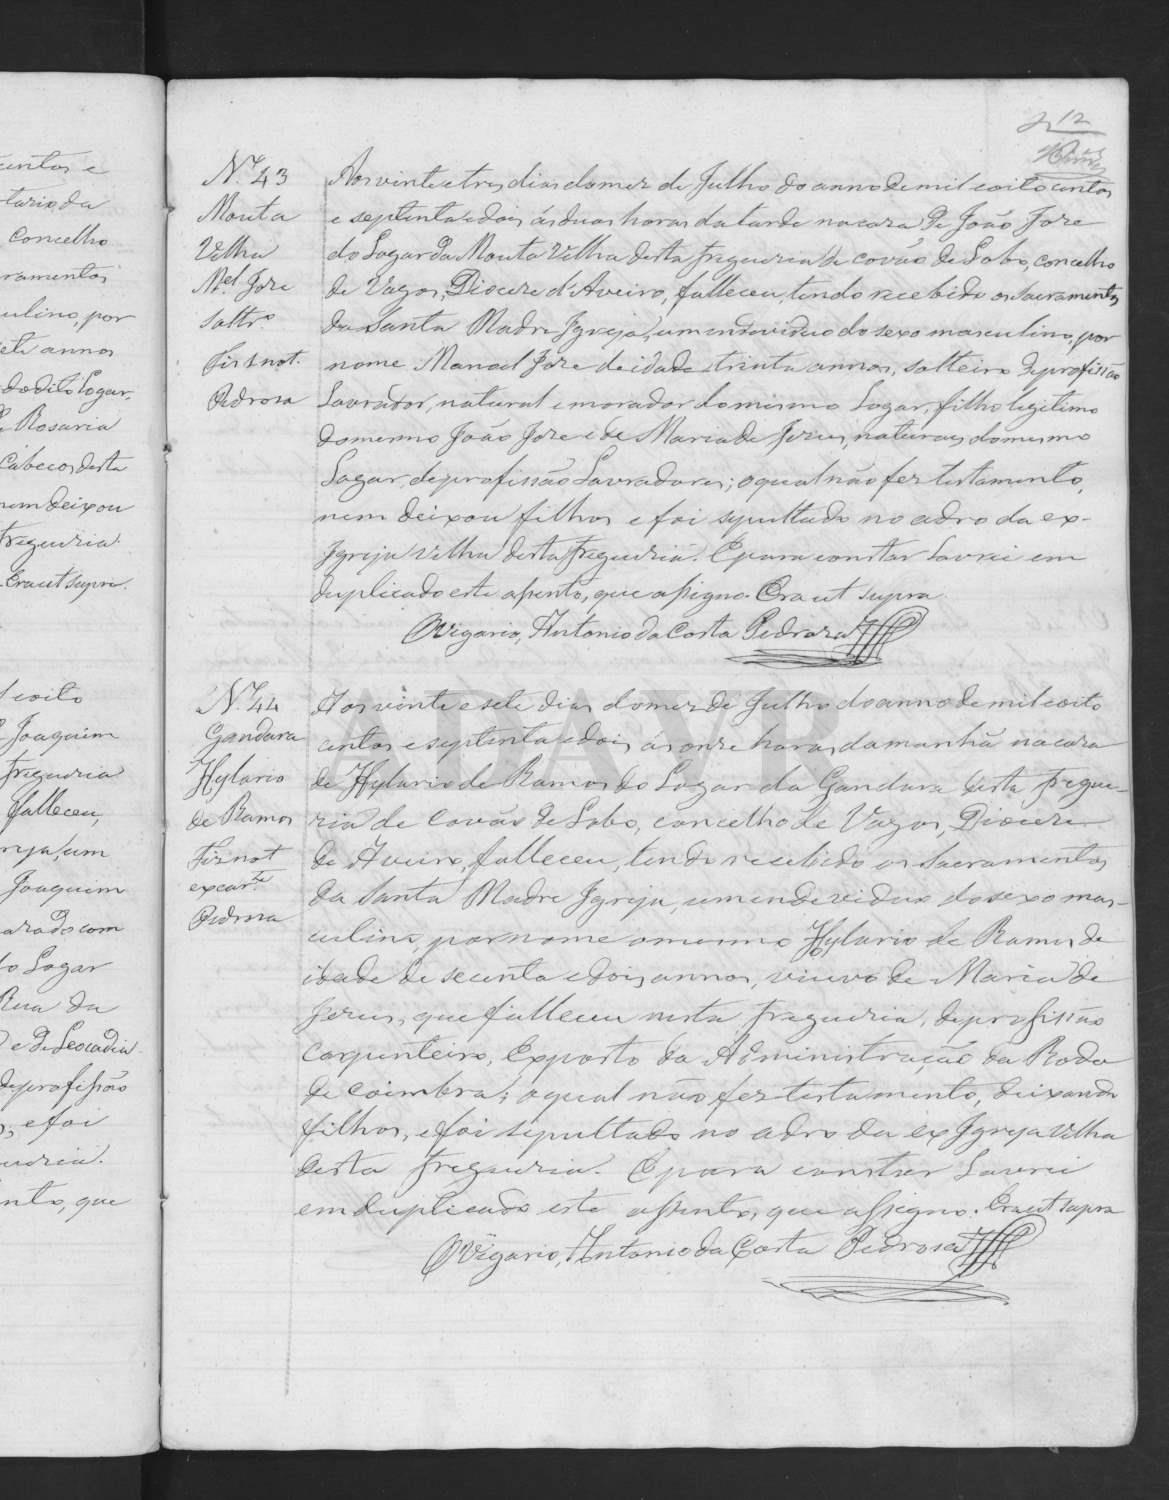 12
N.º 43
Mouta
Velha
M.el Jose
soltr.º
Fis not.
Pedrosa
Aos vinte e tres dias do mez de Julho do anno de mil e oito centos
e septenta e dois, ás duas horas da tarde na caza de João Jose
do Logar da Mouta Velha desta freguezia de Covão de Lobo, concelho
de Vagos, Diocese d'Aveiro, falleceu, tendo recebido os sacramentos
da Santa Madre Igreja, um endeviduo do sexo masculino, por
nome Manoel Jose de idade trinta annos, solteiro de profissão
Lavrador, natural e morador do mesmo Logar, filho legitimo
do mesmo João Jose e de Maria de Jesus, naturaes do mesmo
Logar, de profissão Lavradores; o qual não fez testamento,
nem deixou filhos e foi sepultado no adro da ex-
Igreja velha desta freguezia. E para constar lavrei em
duplicado este assento, que assigno. Era ut supra.
O Vigario, Antonio da Costa Pedrosa
N.º 44
Gandara
Hylario
de Ramos
Fis not
Pedrosa
Aos vinte e sete dias do mez de Julho do anno de mil e oito
centos e septenta e dois, ás onze horas da manhã na caza
de Hylario de Ramos do Logar da Gandara desta fregue-
zia de Covão de Lobo, concelho de Vagos, Diocese
de Aveiro, falleceu, tendo recebido os sacramentos
da Santa Madre Igreja, um endeviduo do sexo mas-
culino, por nome o mesmo Hylario de Ramos de
idade de secenta e dois annos, viuvo de Maria de
Jesus, que falleceu nesta freguezia, de profissão
Carpenteiro, Exposto da Administração da Roda
de Coimbra; o qual não fez testamento, deixando
filhos, e foi sepultado no adro da ex Igreja velha
desta freguezia. E para constar lavrei
em duplicado este assento, que assigno. Era ut supra
O Vigario, Antonio da Costa Pedrosa
ADAVR
centos e
tario da
Concelho
cramentos
culino, por
ete annos
do dito Logar,
de Rosaria
Cabecos desta
nem deixou
freguezia.
Era ut supra.
l e oito
Joaquim
freguezia
falleceu,
reja, um
Joaquim
com
do Logar
Rua da
e de Leocadia
de profissão
e foi
guezia.
ento, que